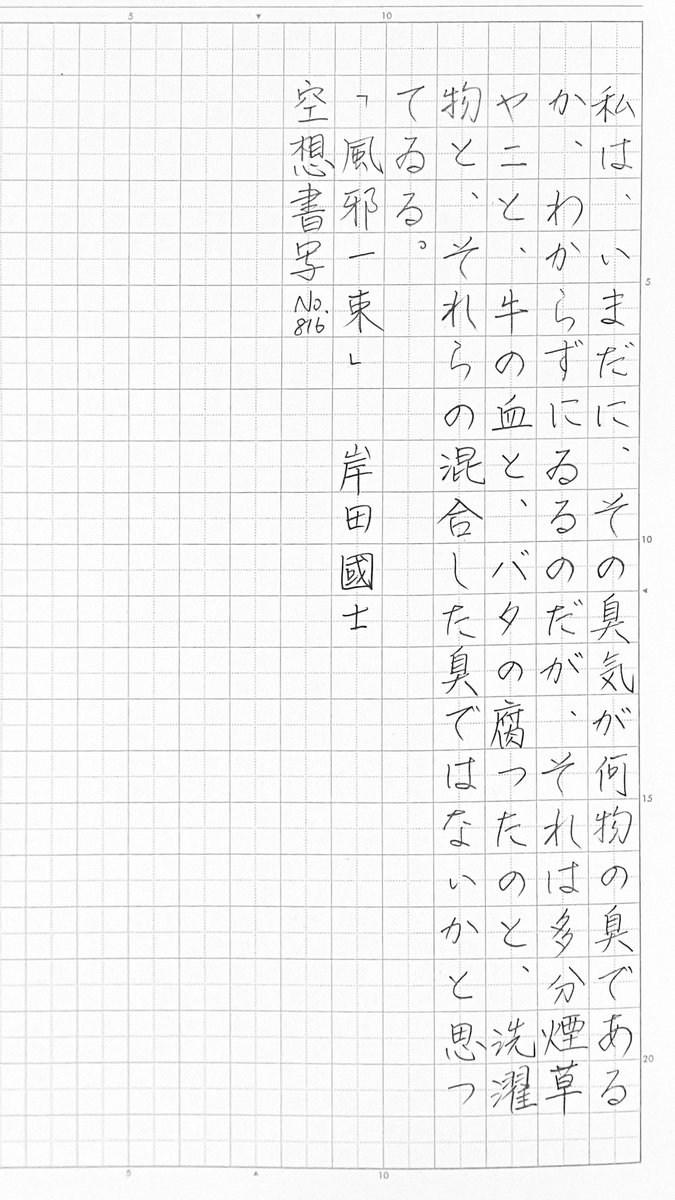 私は、いまだに、その臭気が何物の臭である
か、わからずにゐるのだが、それは多分煙草
ヤニと、牛の血と、バタの腐つたのと、洗濯
物と、それらの混合した臭ではないかと思つ
てゐる。
「風邪一束」 岸田國士
空想書写No.816
5
10
5
10
15
20
5
10